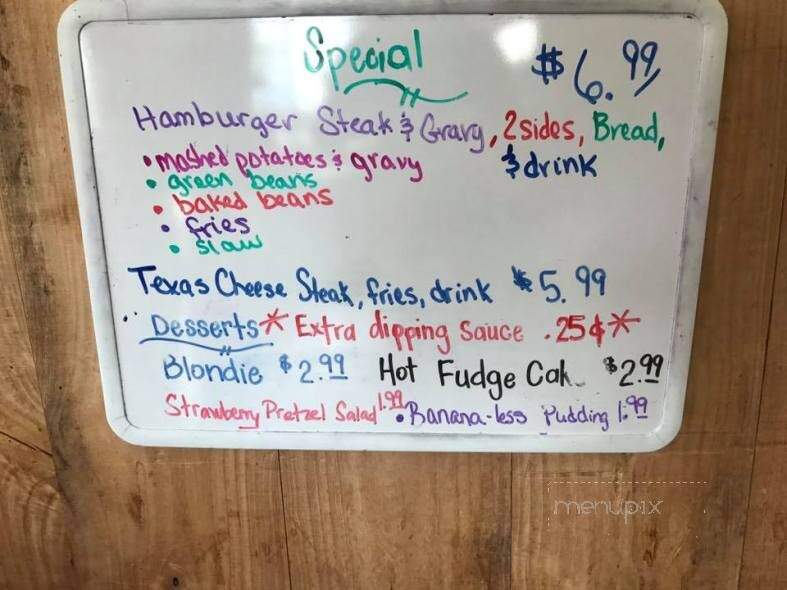 Special $6.99
Hamburger Steak & Gravy, 2 sides, Bread,
& drink
• mashed potatoes & gravy
• green beans
• baked beans
• fries
• slaw
Texas Cheese Steak, fries, drink $5.99
Desserts * Extra dipping sauce .25¢ *
Blondie $2.99 Hot Fudge Cak $2.99
Strawberry Pretzel Salad 1.99 • Banana-less Pudding 1.99
menupix